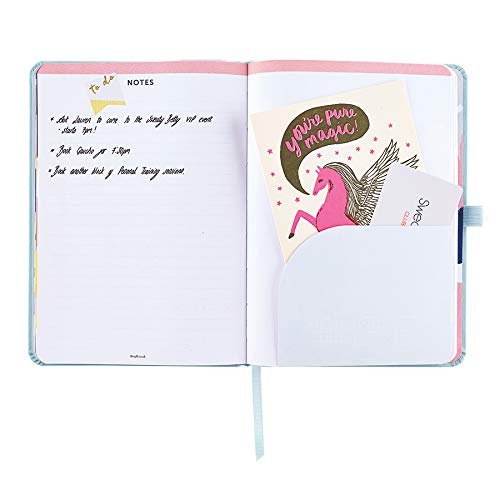 to do
NOTES
• Ask Lauren to come to the Sweaty Betty VIP event
- starts 7pm!
• Book Gaucho for 7:30pm
• Book another block of Personal Training sessions.
you're pure
magic!
Swea
CLUB